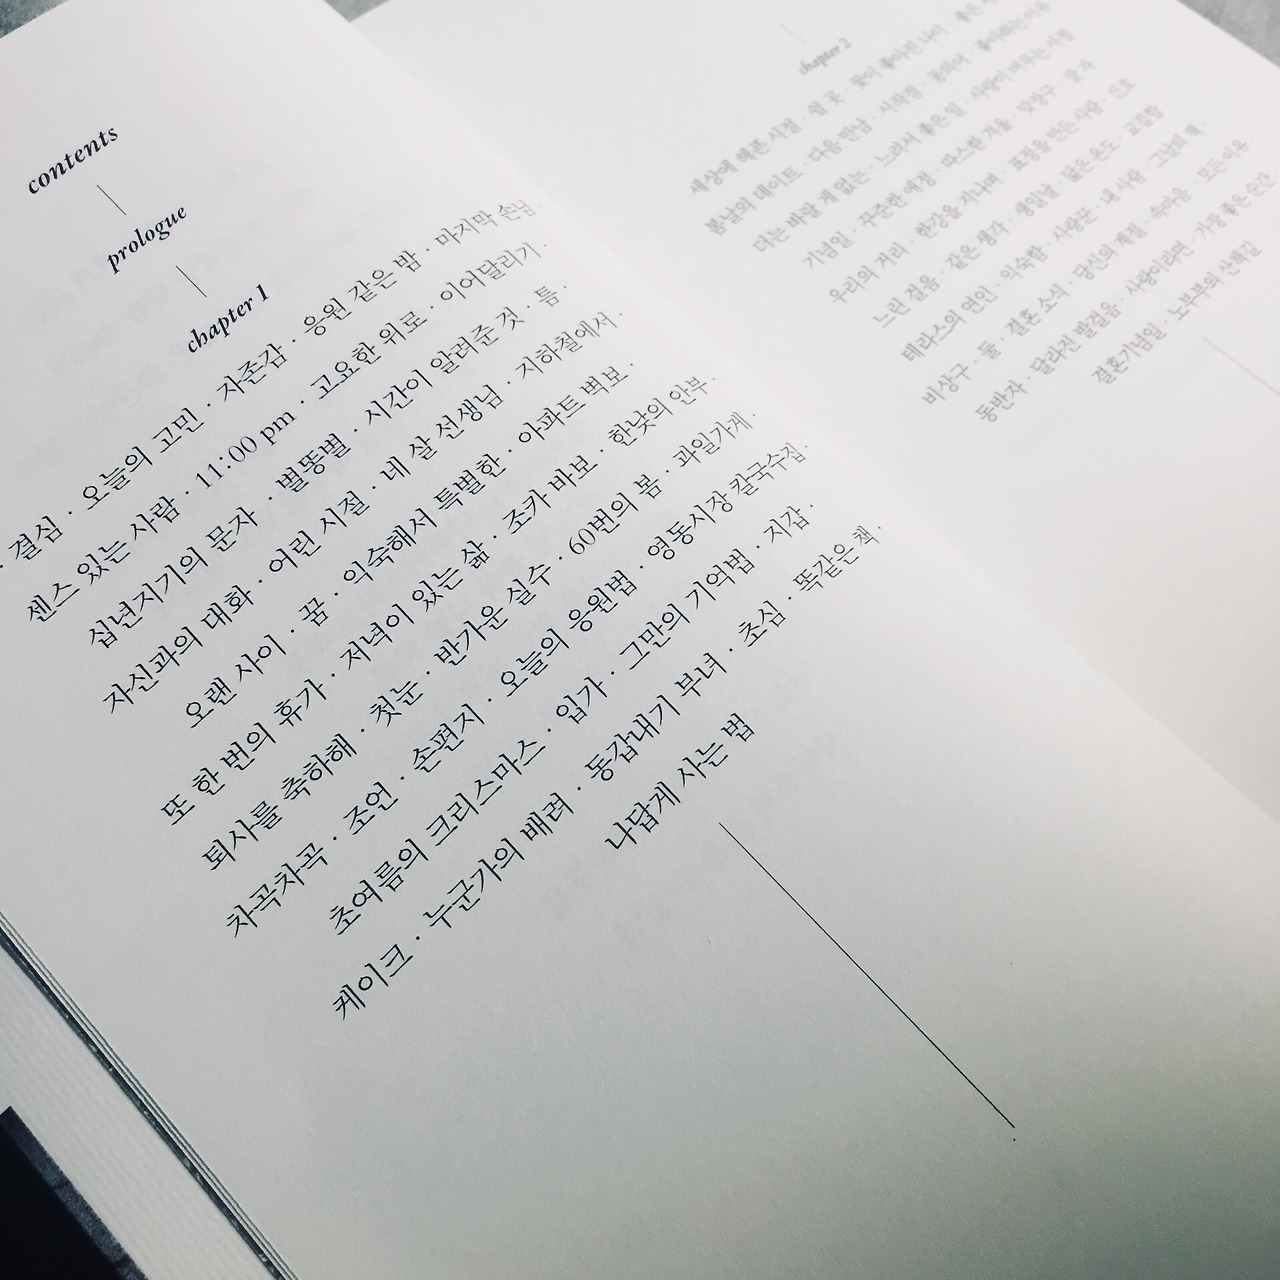 contents
prologue
chapter 1
· 결심 · 오늘의 고민 · 자존감 · 응원 같은 밤 · 마지막 손님 ·
센스 있는 사람 · 11:00 pm · 고요한 위로 · 이어달리기 ·
십년지기의 문자 · 별똥별 · 시간이 알려준 것 · 틈 ·
자신과의 대화 · 어린 시절 · 네 살 선생님 · 지하철에서 ·
오랜 사이 · 꿈 · 익숙해서 특별한 · 아파트 벽보 ·
또 한 번의 휴가 · 저녁이 있는 삶 · 조카 바보 · 한낮의 안부 ·
퇴사를 축하해 · 첫눈 · 반가운 실수 · 60번의 봄 · 과일가게 ·
차곡차곡 · 조언 · 손편지 · 오늘의 응원법 · 영동시장 칼국수집 ·
초여름의 크리스마스 · 입가 · 그만의 기억법 · 지갑 ·
케이크 · 누군가의 배려 · 동갑내기 부녀 · 초심 · 똑같은 책 ·
나답게 사는 법
chapter 2
세상에 예쁜 시절 · 쉴 곳 · 꽃이 좋아진 나이
봄날의 데이트 · 다음 만남 · 시작점 · 동의어 · 좋아하는 이유
더는 바랄 게 없는 · 느려서 좋은 일 · 사랑이 머무는 시점
기념일 · 꾸준한 애정 · 따스한 겨울 · 맞장구 · 팔자
우리의 거리 · 한강을 지나며 · 표정을 만든 사람 · 신호
느린 걸음 · 같은 생각 · 생일날 · 닮은 온도 · 교집합
테라스의 연인 · 익숙함 · 사랑꾼 · 내 사람 · 그날의 책 ·
비상구 · 둘 · 결혼 소식 · 당신의 계절 · 속마음 · 모든 이유
동반자 · 달라진 발걸음 · 사랑이라면 · 가장 좋은 순간
결혼기념일 · 노부부의 산책길